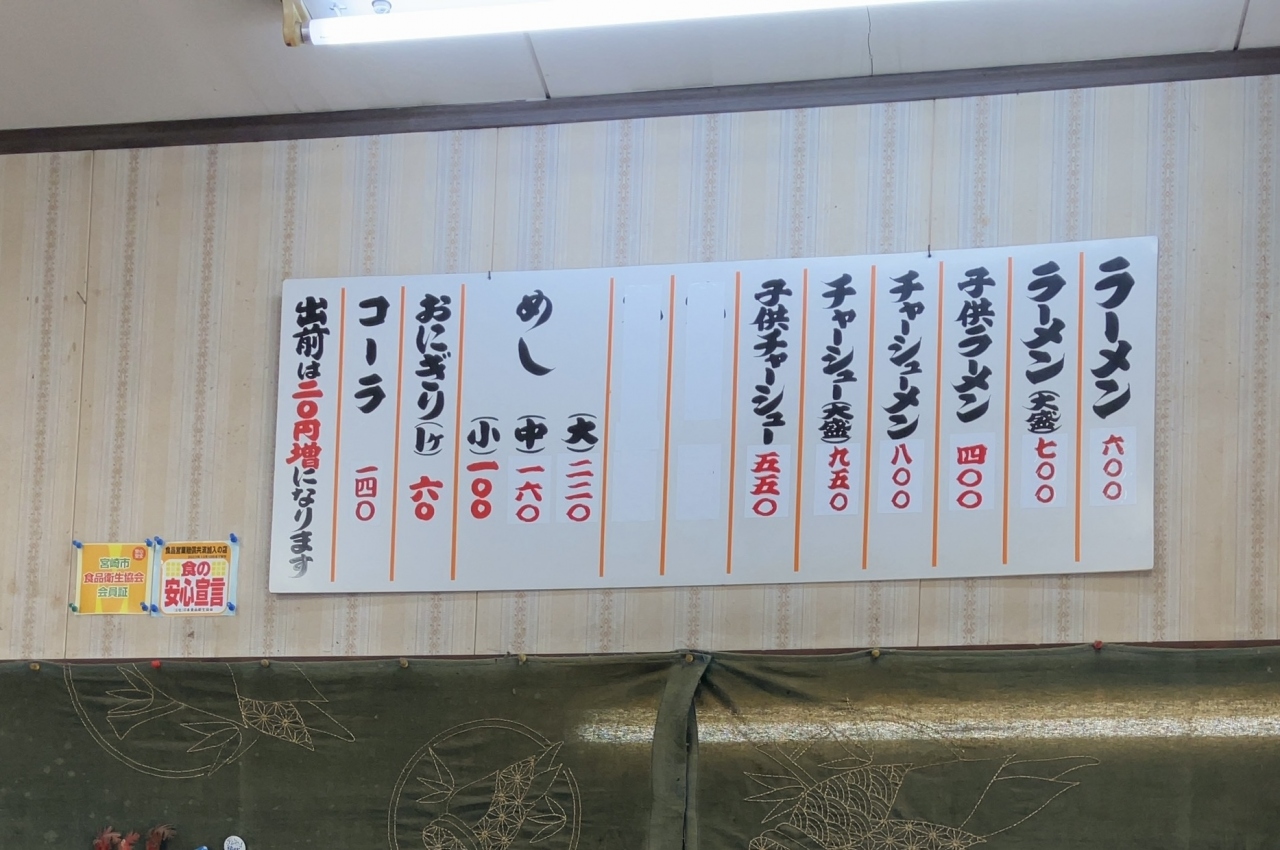 ラーメン 六〇〇
ラーメン(大盛) 七〇〇
子供ラーメン 四〇〇
チャーシューメン 八〇〇
チャーシュー(大盛) 九五〇
子供チャーシュー 五五〇
めし
(大) 二二〇
(中) 一六〇
(小) 一〇〇
おにぎり(1ヶ) 六〇
コーラ 一四〇
出前は二〇円増になります
宮崎市
食品衛生協会
会員証
食品営業賠償共済加入の店
食の
安心宣言